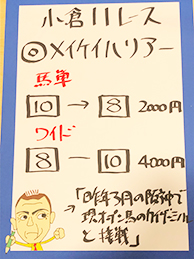 小倉11レース
◎メイケイハリアー
馬単
10→8 2000円
ワイド
8-10 4000円
→「昨年3月の阪神で
現オープン馬の
と接戦」